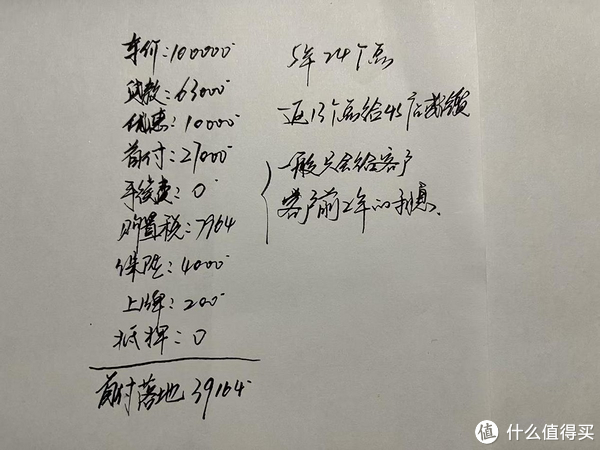 车价:100000
贷款:63000
优惠:10000
首付:27000
手续费:0
购置税:7964
保险:4000
上牌:200
抵押:0
首付落地 39164
5年24个点
返13个点给4S店或销
一般只会给客户
客户前2年的利息.
值 什么值得买